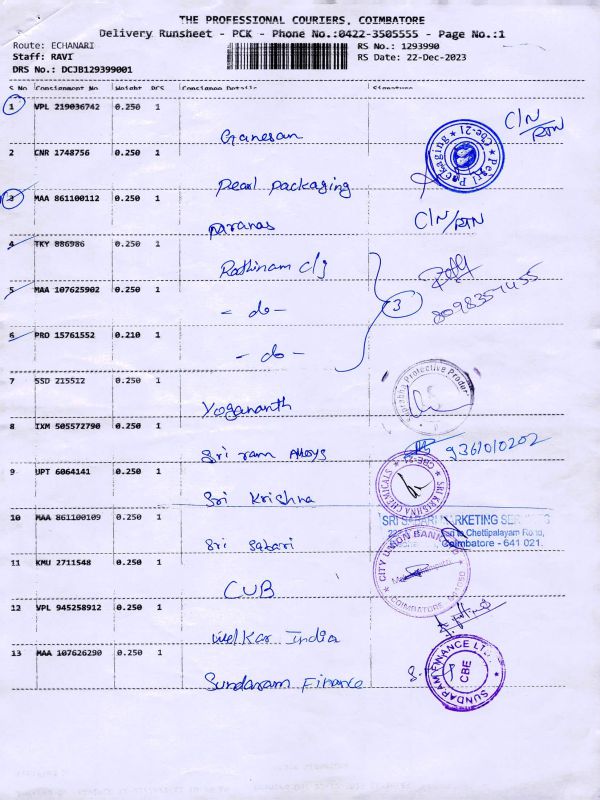 THE PROFESSIONAL COURIERS, COIMBATORE
Delivery Runsheet - PCK - Phone No.:0422-3505555 - Page No.:1
Route: ECHANARI RS No.: 1293990
Staff: RAVI RS Date: 22-Dec-2023
DRS No.: DCJB129399001
S No Consignment No Weight PCS Consignee Details Signature
1 VPL 219036742 0.250 1
Ganesan C/N/RTN
2 CNR 1748756 0.250 1
Pearl packaging Pearl Packaging Cbe-21
3 MAA 861100112 0.250 1
C/N/RTN
4 TKY 886986 0.250 1
Rathinam clg
5 MAA 107625902 0.250 1
- do - 3
6 PRO 15761552 0.210 1
- do -
7 SSD 215512 0.250 1
Yogananth
8 IXM 505572790 0.250 1
Sri ram Alloys
9 UPT 6064141 0.250 1
Sri Krishna SRI KRISHNA CHEMICALS CBE-21
10 MAA 861100109 0.250 1
Sri Sabari SRI SABARI MARKETING
Chettipalayam Road,
Coimbatore - 641 021.
11 KMU 2711548 0.250 1
CUB CITY UNION BANK COIMBATORE
12 VPL 945258912 0.250 1
India
13 MAA 107626290 0.250 1
Sundaram Finance SUNDARAM FINANCE LTD. CBE